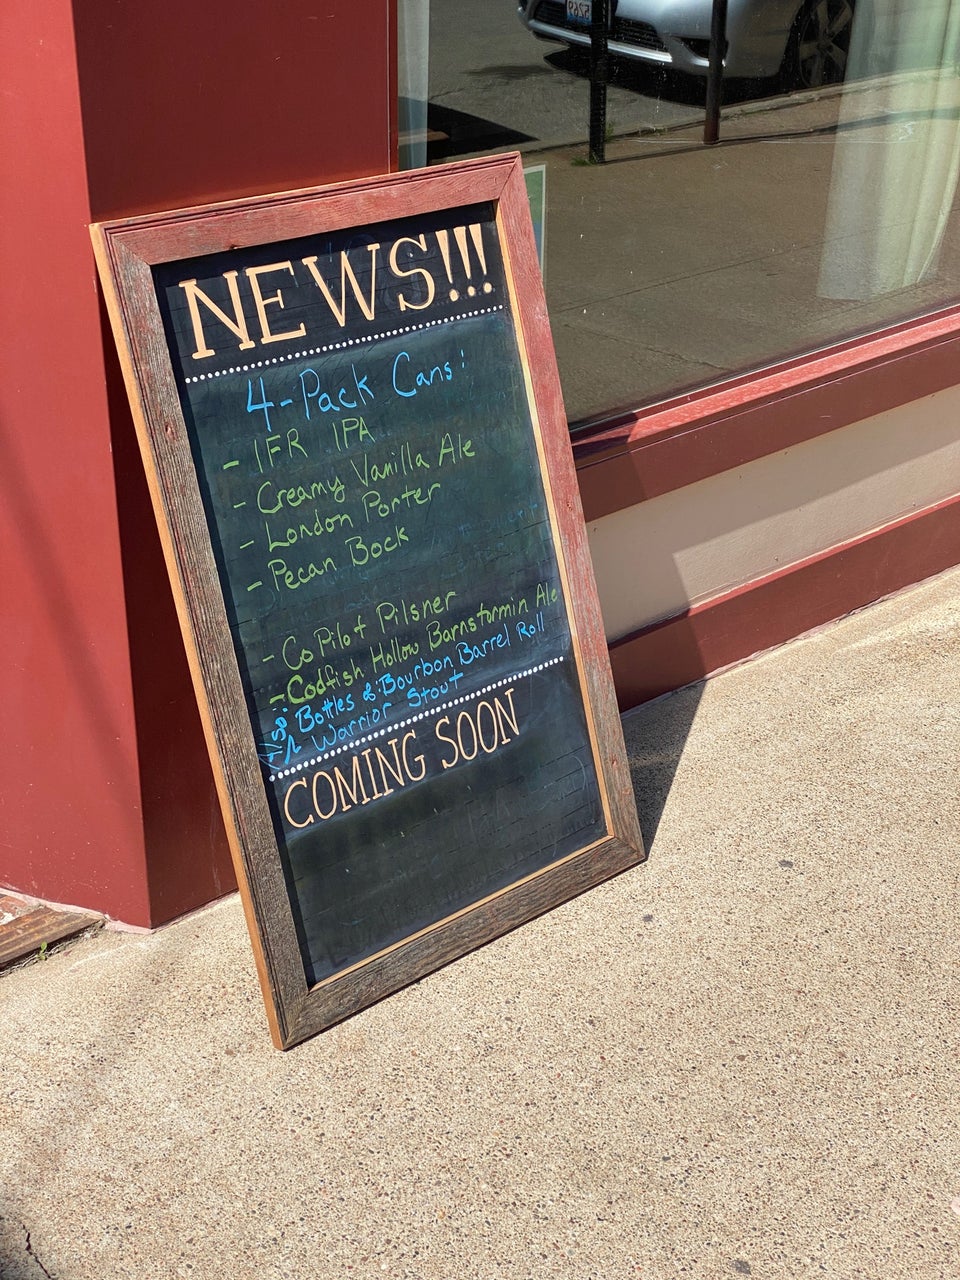 NEWS!!!
4-Pack Cans:
- IFR IPA
- Creamy Vanilla Ale
- London Porter
- Pecan Bock
- CoPilot Pilsner
- Codfish Hollow Barnstormin Ale
Bottles of: Bourbon Barrel Roll
Warrior Stout
COMING SOON